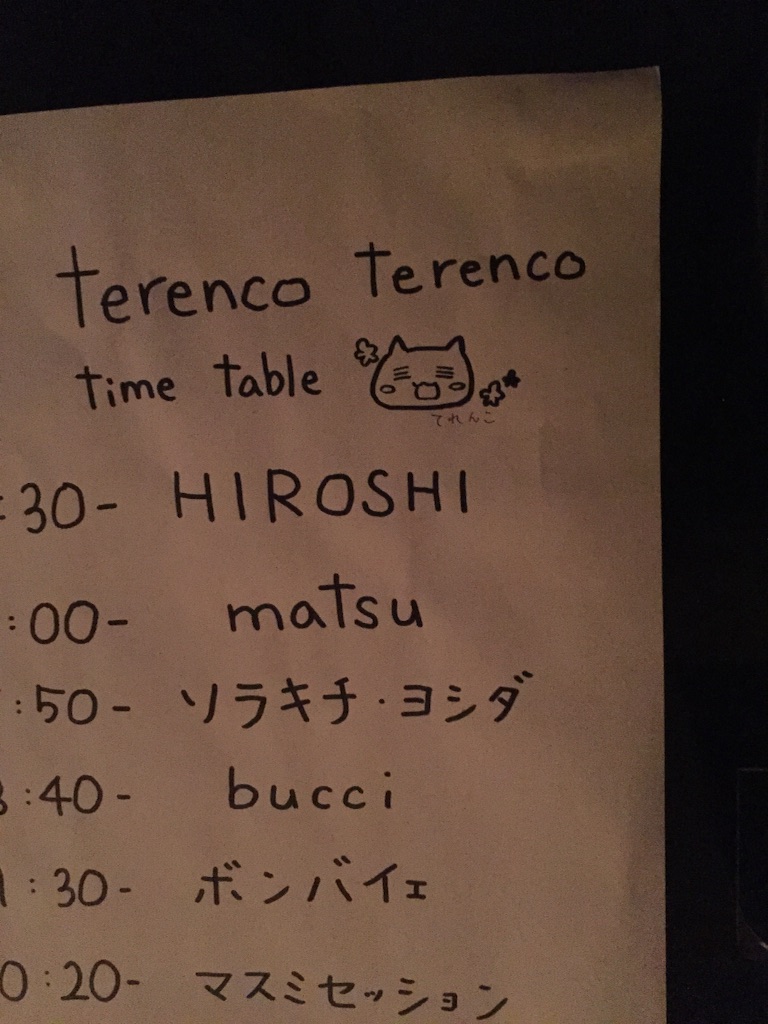 terenco terenco
time table
てれんこ
:30- HIROSHI
:00- matsu
:50- ソラキチ・ヨシダ
:40- bucci
:30- ボンバイェ
0:20- マスミセッション